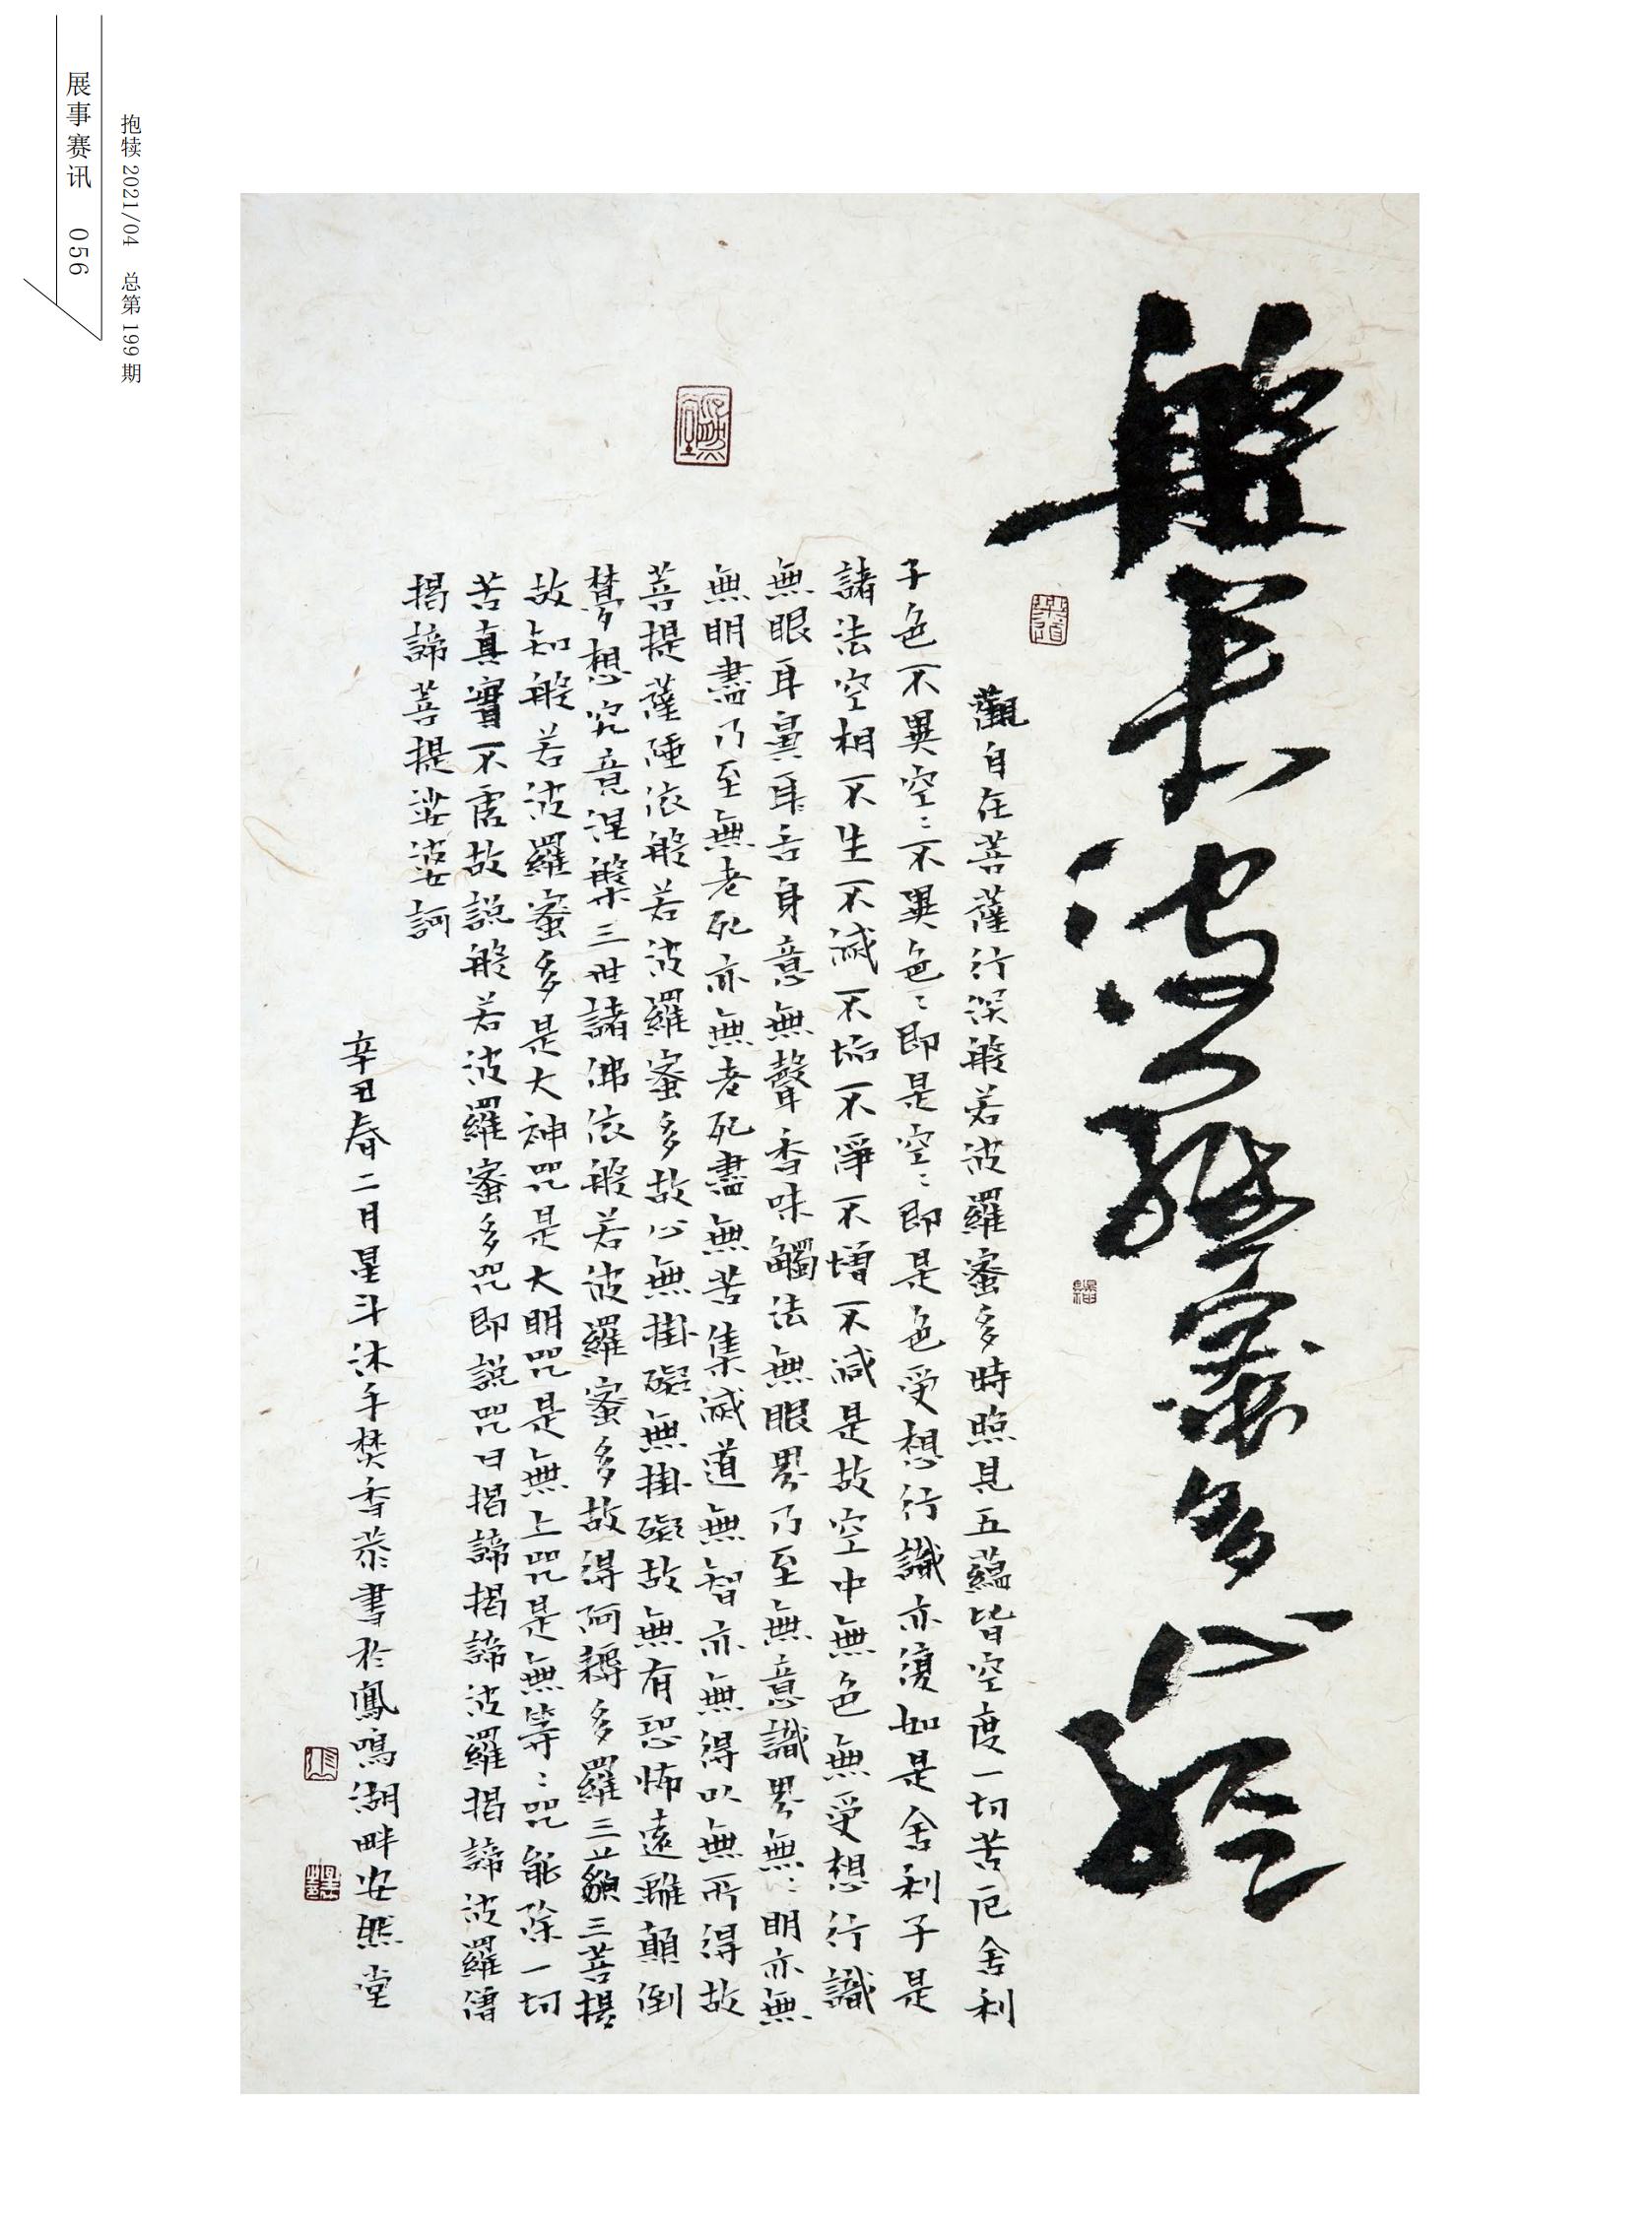 展事赛讯 056
抱犊 2021/04 总第 199 期
般若波羅蜜多心經
觀自在菩薩行深般若波羅蜜多時照見五蘊皆空度一切苦厄舍利
子色不異空〻不異色〻即是空〻即是色受想行識亦復如是舍利子是
諸法空相不生不滅不垢不淨不增不減是故空中無色無受想行識
無眼耳鼻耳舌身意無聲香味觸法無眼界乃至無意識界無〻明亦無
無明盡乃至無老死亦無老死盡無苦集滅道無智亦無得以無所得故
菩提薩埵依般若波羅蜜多故心無掛礙無掛礙故無有恐怖遠離顛倒
夢想究竟涅槃三世諸佛依般若波羅蜜多故得阿耨多羅三藐三菩提
故知般若波羅蜜多是大神咒是大明咒是無上咒是無等〻咒能除一切
苦真實不虛故說般若波羅蜜多咒即說咒曰揭諦揭諦波羅揭諦波羅僧
揭諦菩提娑婆訶
辛丑春二月星斗沐手焚香恭書於鳳鳴湖畔安熙堂